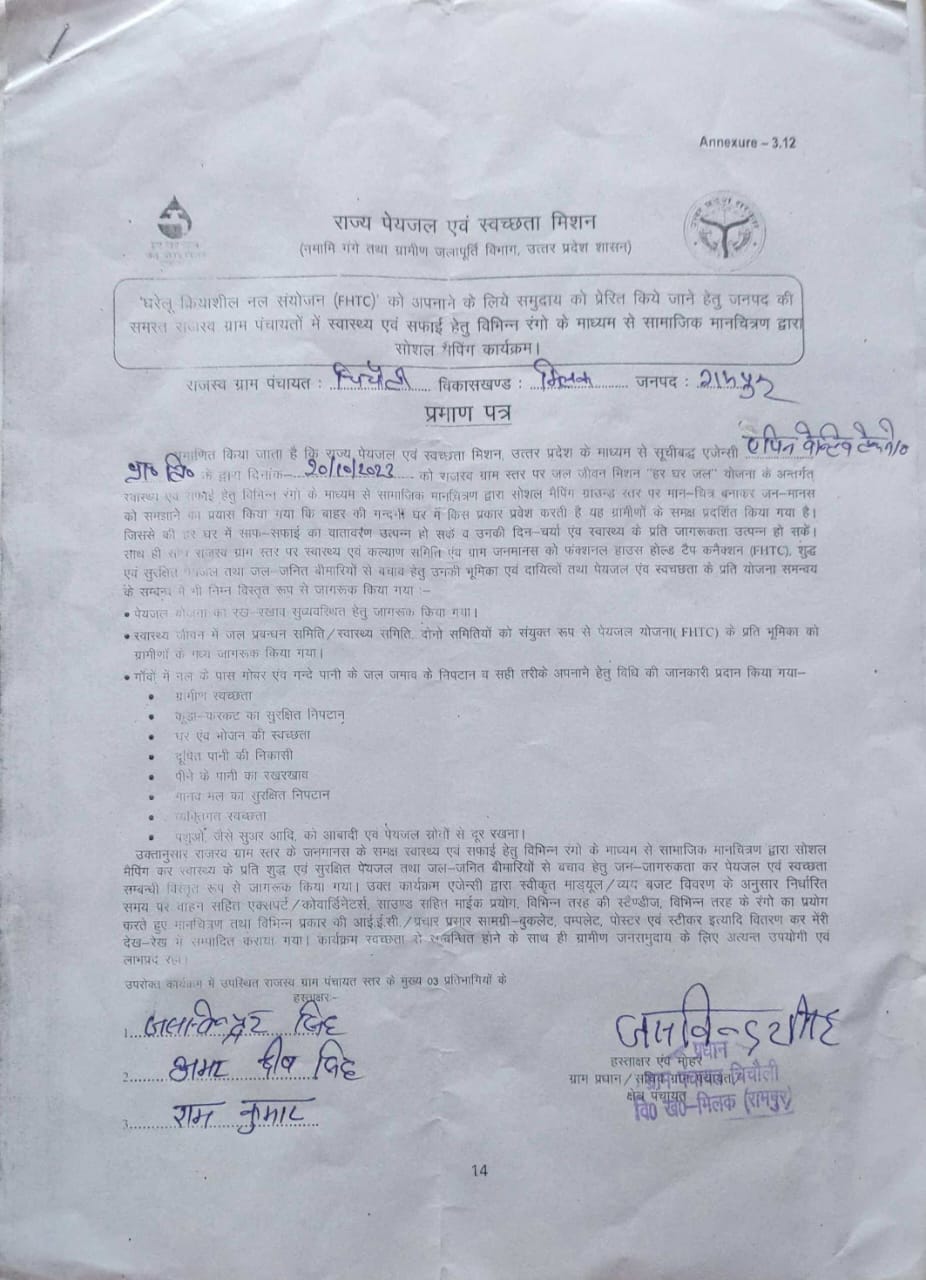 Annexure – 3.12
राज्य पेयजल एवं स्वच्छता मिशन
(नमामि गंगे तथा ग्रामीण जलापूर्ति विभाग, उत्तर प्रदेश शासन)
'घरेलू क्रियाशील नल संयोजन (FHTC)' को अपनाने के लिये समुदाय को प्रेरित किये जाने हेतु जनपद की
समस्त राजस्व ग्राम पंचायतों में स्वास्थ्य एवं सफाई हेतु विभिन्न रंगो के माध्यम से सामाजिक मानचित्रण द्वारा
सोशल मैपिंग कार्यक्रम।
राजस्व ग्राम पंचायत : चिचौली विकासखण्ड : मिलक जनपद : रामपुर
प्रमाण पत्र
प्रमाणित किया जाता है कि राज्य पेयजल एवं स्वच्छता मिशन, उत्तर प्रदेश के माध्यम से सूचीबद्ध एजेन्सी
प्रा० लि० के द्वारा दिनांक– 20/10/2022 को राजस्व ग्राम स्तर पर जल जीवन मिशन "हर घर जल" योजना के अन्तर्गत
स्वास्थ्य एवं सफाई हेतु विभिन्न रंगो के माध्यम से सामाजिक मानचित्रण द्वारा सोशल मैपिंग ग्राउन्ड स्तर पर मान–चित्र बनाकर जन–मानस
को समझाने का प्रयास किया गया कि बाहर की गन्दगी घर में किस प्रकार प्रवेश करती है यह ग्रामीणों के समक्ष प्रदर्शित किया गया है।
जिससे की हर घर में साफ–सफाई का वातावरण उत्पन्न हो सकें व उनकी दिन–चर्या एंव स्वास्थ्य के प्रति जागरूकता उत्पन्न हो सकें।
साथ ही साथ राजस्व ग्राम स्तर पर स्वास्थ्य एवं कल्याण समिति एंव ग्राम जनमानस को फंक्शनल हाउस होल्ड टैप कनैक्शन (FHTC), शुद्ध
एवं सुरक्षित पेयजल तथा जल–जनित बीमारियों से बचाव हेतु उनकी भूमिका एवं दायित्वों तथा पेयजल एंव स्वचछता के प्रति योजना समन्वय
के सम्बन्ध में भी निम्न विस्तृत रूप से जागरूक किया गया :–
• पेयजल योजना का रख–रखाव सुव्यवस्थित हेतु जागरूक किया गया।
• स्वास्थ्य जीवन में जल प्रबन्धन समिति/स्वास्थ्य समिति, दोनो समितियों को संयुक्त रूप से पेयजल योजना( FHTC) के प्रति भूमिका को
ग्रामीणों के मध्य जागरूक किया गया।
• गाँवों में नल के पास गोबर एंव गन्दे पानी के जल जमाव के निपटान व सही तरीके अपनाने हेतु विधि की जानकारी प्रदान किया गया–
• ग्रामीण स्वच्छता
• कूडा–करकट का सुरक्षित निपटान्
• घर एंव भोजन की स्वच्छता
• दूषित पानी की निकासी
• पीने के पानी का रखरखाव
• मानव मल का सुरक्षित निपटान
• व्यक्तिगत स्वच्छता
• पशुओं, जैसे सुअर आदि, को आबादी एवं पेयजल स्रोतों से दूर रखना।
उक्तानुसार राजस्व ग्राम स्तर के जनमानस के समक्ष स्वास्थ्य एवं सफाई हेतु विभिन्न रंगो के माध्यम से सामाजिक मानचित्रण द्वारा सोशल
मैपिंग कर स्वास्थ्य के प्रति शुद्ध एवं सुरक्षित पेयजल तथा जल–जनित बीमारियों से बचाव हेतु जन–जागरुकता कर पेयजल एवं स्वच्छता
सम्बन्धी विस्तृत रूप से जागरूक किया गया। उक्त कार्यक्रम एजेन्सी द्वारा स्वीकृत माड्यूल/व्यय बजट विवरण के अनुसार निर्धारित
समय पर वाहन सहित एक्सपर्ट/कोवार्डिनेटर्स, साउण्ड सहित माईक प्रयोग, विभिन्न तरह की स्टैण्डीज, विभिन्न तरह के रंगो का प्रयोग
करते हुए मानचित्रण तथा विभिन्न प्रकार की आई.ई.सी./प्रचार प्रसार सामग्री–बुकलेट, पम्पलेट, पोस्टर एवं स्टीकर इत्यादि वितरण कर मेरी
देख–रेख में सम्पादित कराया गया। कार्यक्रम स्वच्छता से सम्बन्धित होने के साथ ही ग्रामीण जनसमुदाय के लिए अत्यन्त उपयोगी एवं
लाभप्रद रहा।
उपरोक्त कार्यक्रम में उपस्थित राजस्व ग्राम पंचायत स्तर के मुख्य 03 प्रतिभागियों के
हस्ताक्षर:-
1. सिंह
2. सिंह
3. राम कुमार
हस्ताक्षर एंव मोहर
ग्राम प्रधान/सचिव ग्राम पंचायत/
क्षेत्र पंचायत
प्रधान
ग्राम पंचायत चिचौली
वि० ख०–मिलक (रामपुर)
14